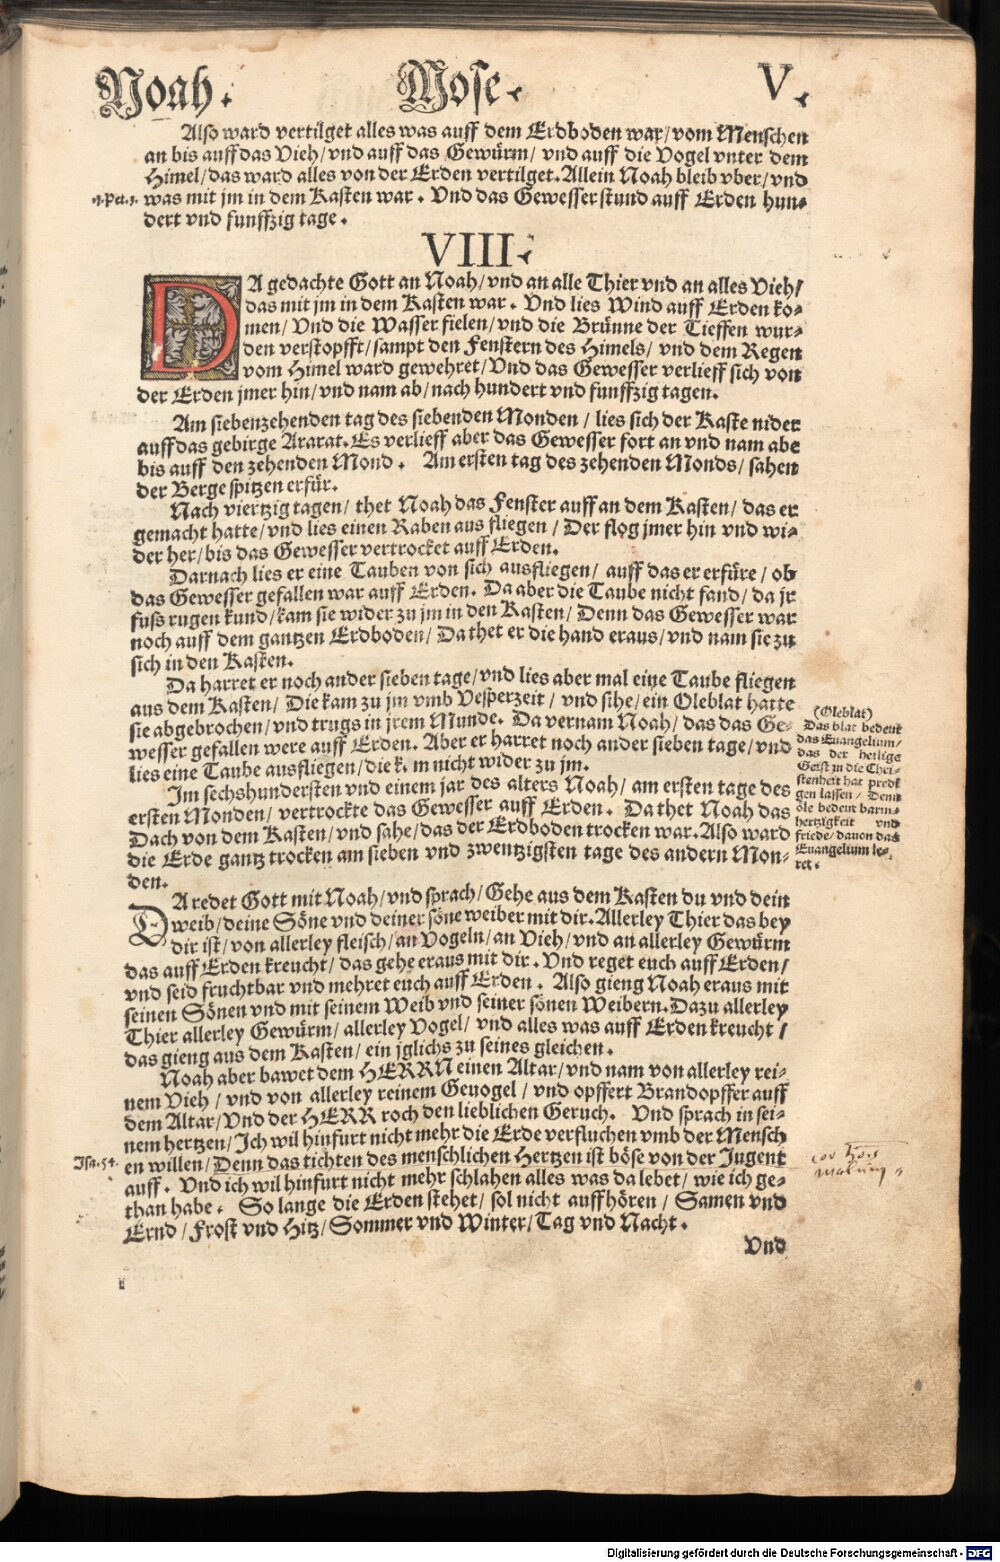 Noah. Mose. V.
Also ward vertilget alles was auff dem Erdboden war/vom Menschen
an bis auff das Vieh/vnd auff das Gewürm/ vnd auff die Vogel vnter dem
Himel/das ward alles von der Erden vertilget. Allein Noah bleib vber/vnd
was mit jm in dem Kasten war. Vnd das Gewesser stund auff Erden hun-
dert vnd funffzig tage.
VIII.
DA gedachte Gott an Noah/vnd an alle Thier vnd an alles Vieh/
das mit jm in dem Kasten war. Vnd lies Wind auff Erden ko-
men/ Vnd die Wasser fielen/vnd die Brünne der Tieffen wur-
den verstopfft/sampt den Fenstern des Himels/ vnd dem Regen
vom Himel ward gewehret/Vnd das Gewesser verlieff sich von
der Erden jmer hin/vnd nam ab/nach hundert vnd funffzig tagen.
Am siebenzehenden tag des siebenden Monden/ lies sich der Kaste nider
auff das gebirge Ararat. Es verlieff aber das Gewesser fort an vnd nam abe
bis auff den zehenden Mond. Am ersten tag des zehenden Monds/ sahen
der Berge spitzen erfür.
Nach viertzig tagen/ thet Noah das Fenster auff an dem Kasten/ das er
gemacht hatte/vnd lies einen Raben aus fliegen/ Der flog jmer hin vnd wi-
der her/bis das Gewesser vertrocket auff Erden.
Darnach lies er eine Tauben von sich ausfliegen/ auff das er erfüre/ ob
das Gewesser gefallen war auff Erden. Da aber die Taube nicht fand/ da jr
fuss rugen kund/kam sie wider zu jm in den Kasten/ Denn das Gewesser war
noch auff dem gantzen Erdboden/ Da thet er die hand eraus/vnd nam sie zu
sich in den Kasten.
Da harret er noch ander sieben tage/vnd lies aber mal eine Taube fliegen
aus dem Kasten/ Die kam zu jm vmb Vesperzeit/ vnd sihe/ein Oleblat hatte
sie abgebrochen/vnd trugs in jrem Munde. Da vernam Noah/das das Ge-
wesser gefallen were auff Erden. Aber er harret noch ander sieben tage/vnd
lies eine Taube ausfliegen/die k. m nicht wider zu jm.
Im sechshundersten vnd einem jar des alters Noah/ am ersten tage des
ersten Monden/ vertrockte das Gewesser auff Erden. Da thet Noah das
Dach von dem Kasten/vnd sahe/das der Erdboden trocken war. Also ward
die Erde gantz trocken am sieben vnd zwentzigsten tage des andern Mon-
den.
DA redet Gott mit Noah/vnd sprach/ Gehe aus dem Kasten du vnd dein
weib/deine Söne vnd deiner söne weiber mit dir. Allerley Thier das bey
dir ist/von allerley fleisch/an Vogeln/an Vieh/vnd an allerley Gewürm
das auff Erden kreucht/das gehe eraus mit dir. Vnd reget euch auff Erden/
vnd seid fruchtbar vnd mehret euch auff Erden. Also gieng Noah eraus mit
seinen Sönen vnd mit seinem Weib vnd seiner sönen Weibern. Dazu allerley
Thier allerley Gewürm/ allerley Vogel/ vnd alles was auff Erden kreucht/
das gieng aus dem Kasten/ ein jglichs zu seines gleichen.
Noah aber bawet dem HERRN einen Altar/vnd nam von allerley rei-
nem Vieh/ vnd von allerley reinem Geuogel/ vnd opffert Brandopffer auff
dem Altar/Vnd der HERR roch den lieblichen Geruch. Vnd sprach in sei-
nem hertzen/Ich wil hinfurt nicht mehr die Erde verfluchen vmb der Mensch
en willen/Denn das tichten des menschlichen Hertzen ist böse von der Jugent
auff. Vnd ich wil hinfurt nicht mehr schlahen alles was da lebet/ wie ich ge-
than habe. So lange die Erden stehet/ sol nicht auffhören/ Samen vnd
Ernd/Frost vnd Hitz/Sommer vnd Winter/Tag vnd Nacht.
Vnd
Pet.
(Oleblat)
Das blat bedeut
das Euangelium/
das der heilige
Geist in die Chri-
stenheit hat predi
gen lassen/ Denn
öle bedeut barm-
hertzigkeit vnd
friede/dauon das
Euangelium le-
ret.
Isa. 54.
Digitalisierung gefördert durch die Deutsche Forschungsgemeinschaft - DFG